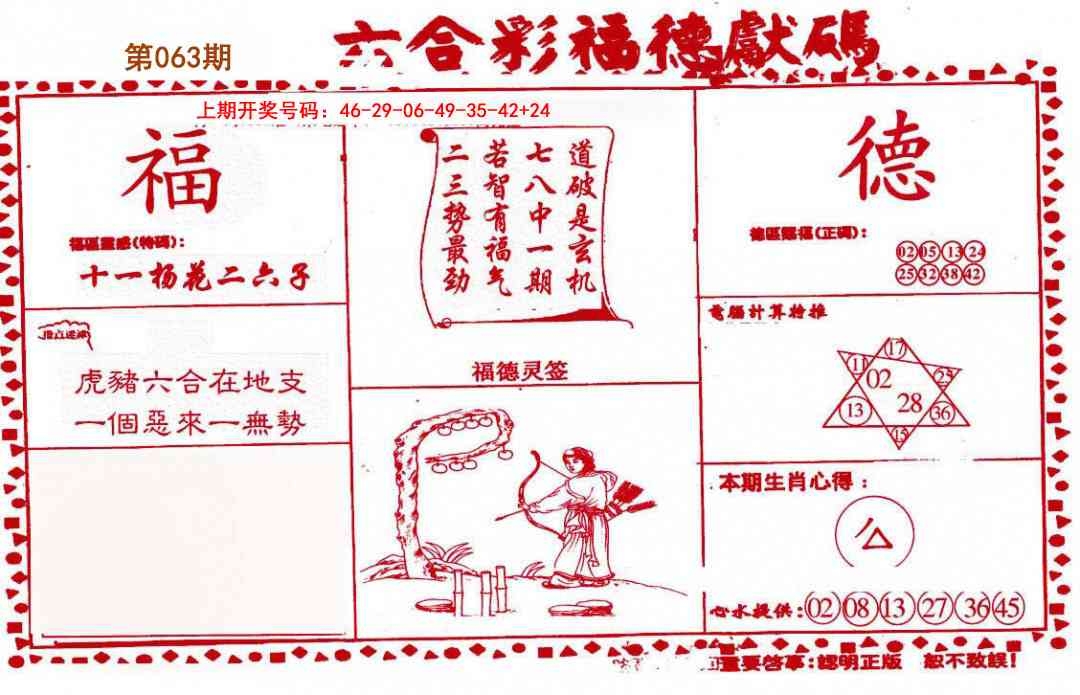 第063期
六合彩福德獻碼
上期开奖号码：46-29-06-49-35-42+24
福
福區靈感(特碼)：
十一杨花二六子
虎豬六合在地支
一個惡來一無勢
道破是玄机
七八中一期
若智有福气
二三势最劲
福德灵签
德
(正碼)：
02 05 13 24
25 32 38 42
電腦計算特推
17
11
02
25
28
13
36
15
本期生肖心得：
心水提供：02 08 13 27 36 45
重要啓事：認明正版 恕不致誤！